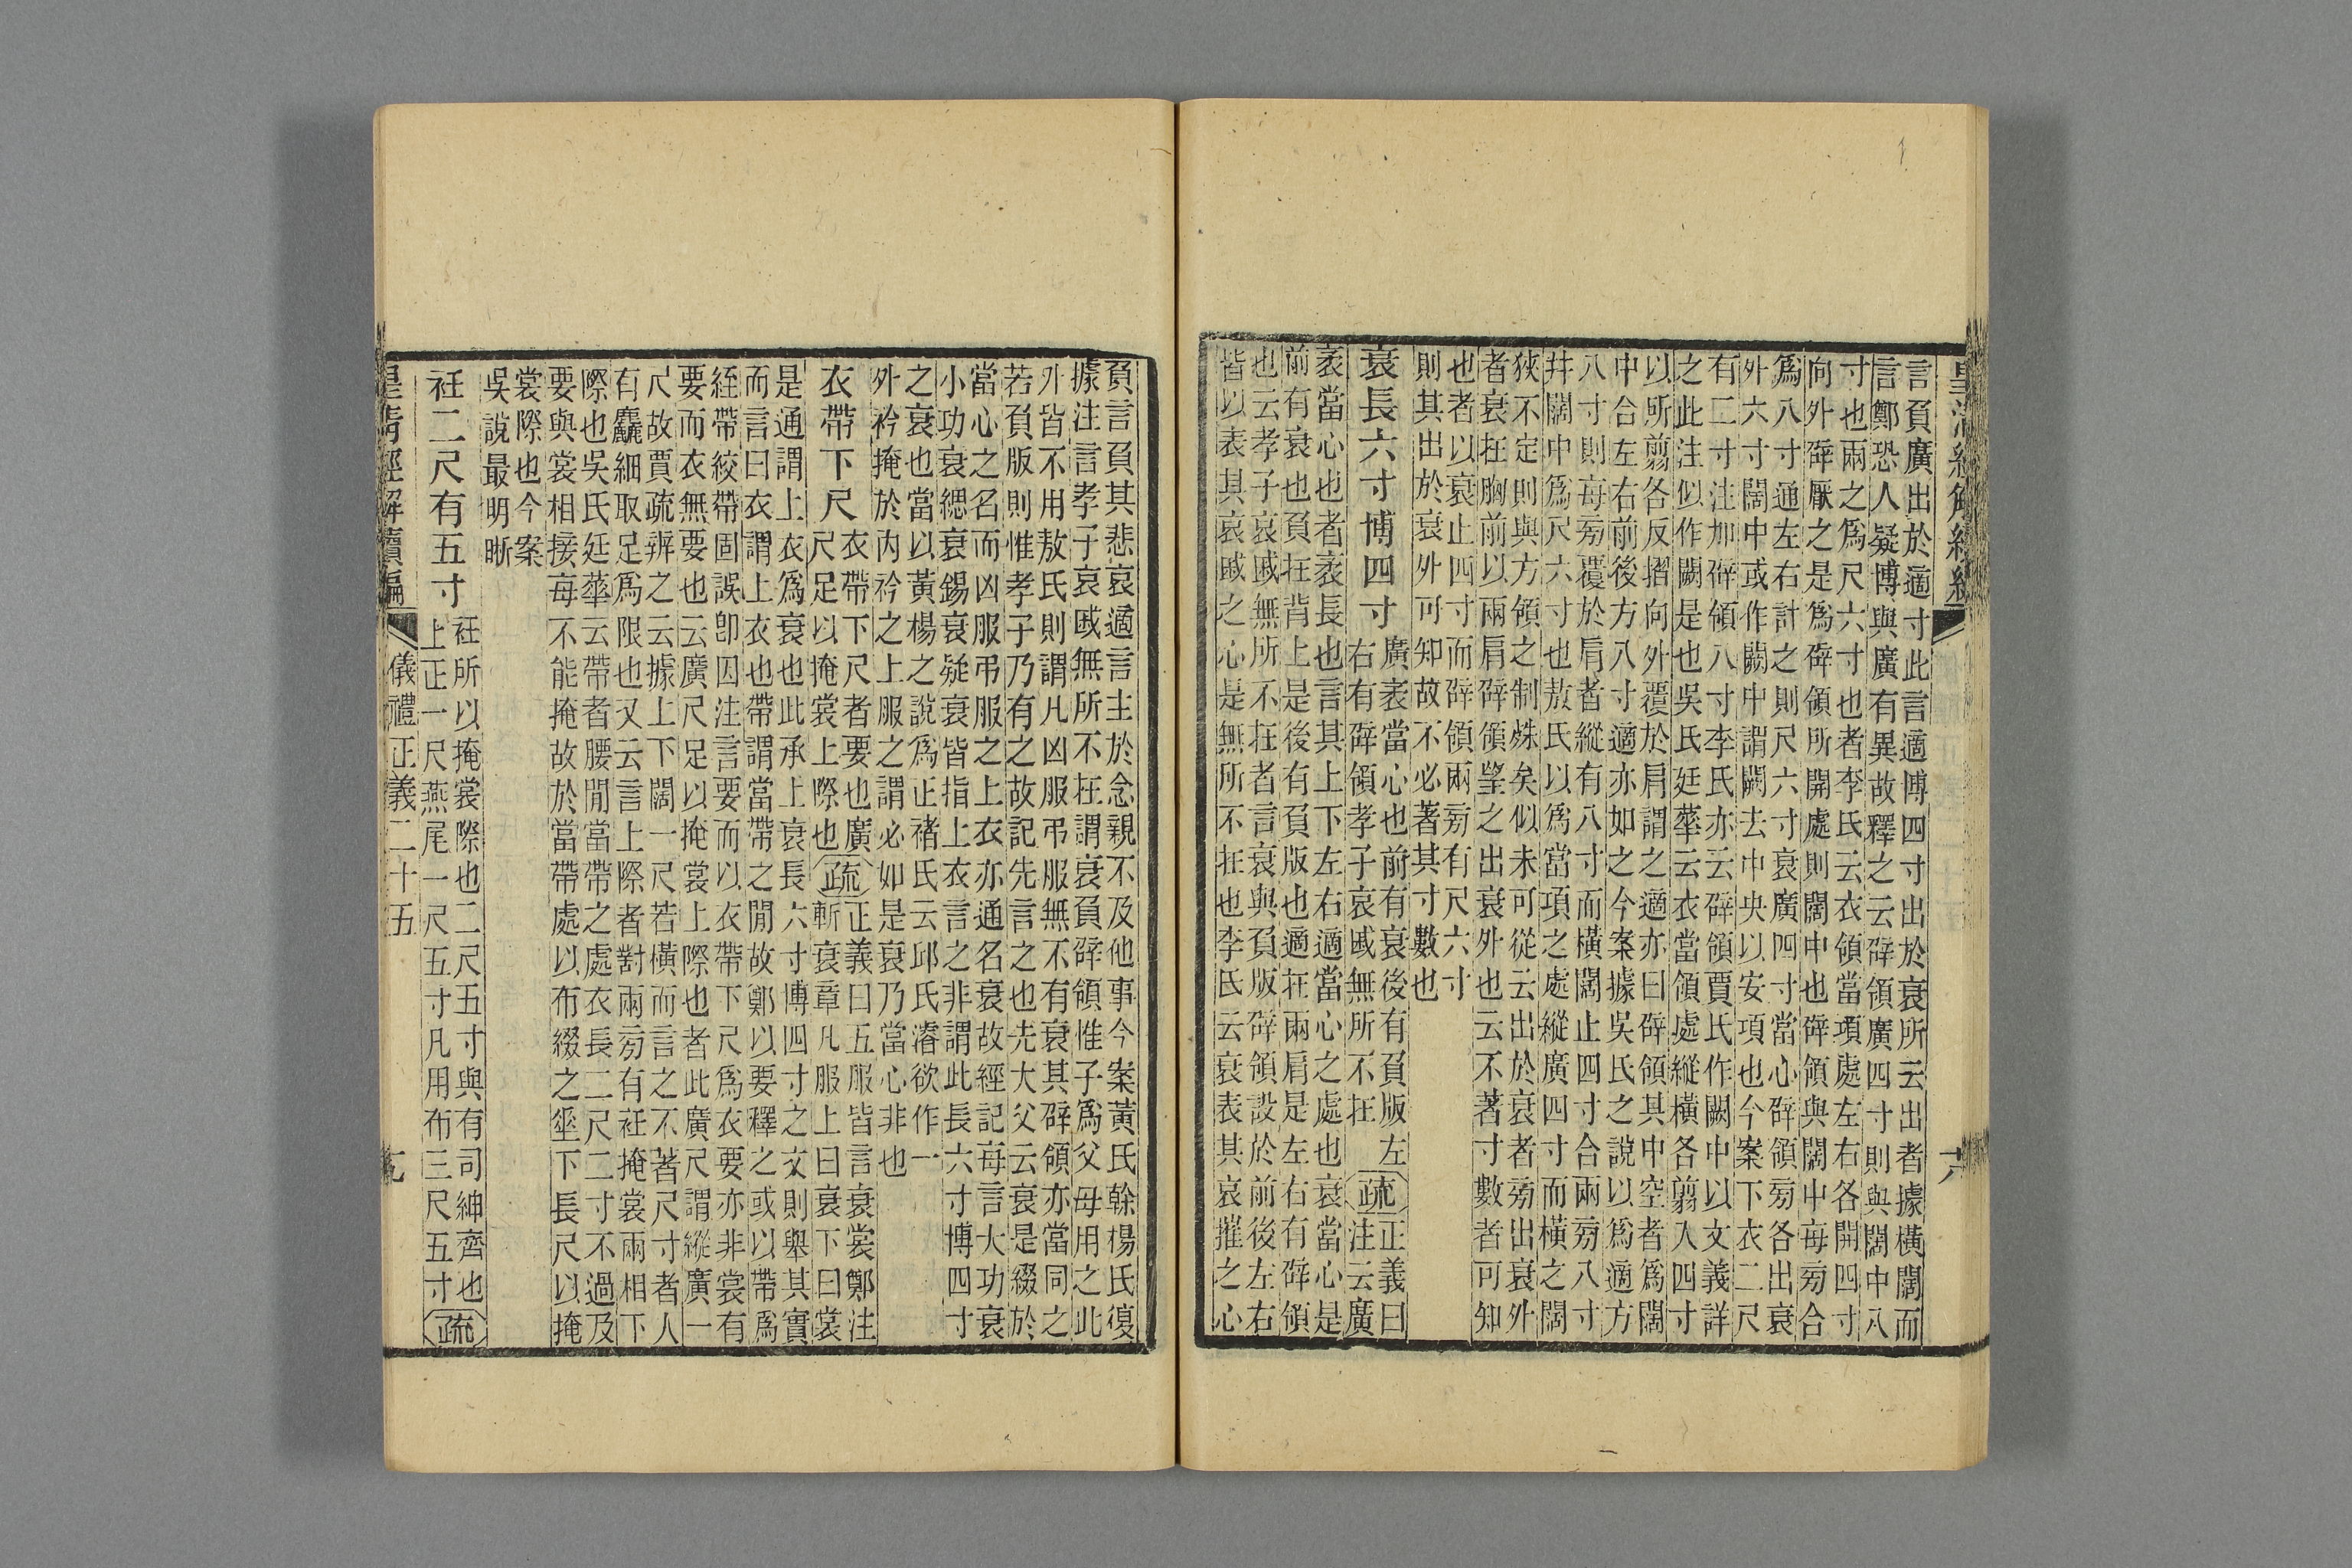 言負廣出於適寸此言適博四寸出於衰所云出者據橫闊而
言鄭恐人疑博與廣有異故釋之云辟領廣四寸則與闊中八
寸也兩之爲尺六寸也者李氏云衣領當項處左右各開四寸
向外辟厭之是爲辟領所開處則闊中也辟領與闊中每旁合
爲八寸通左右計之則尺六寸衰廣四寸當心辟領旁各出衰
外六寸闊中或作闕中謂闕去中央以安項也今案下衣二尺
有二寸注加辟領八寸李氏亦云辟領賈氏作闕中以文義詳
之此注似作闕是也吳氏廷華云衣當領處縱橫各翦入四寸
以所翦各反摺向外覆於肩謂之適亦曰辟領其中空者爲闊
中合左右前後方八寸適亦如之今案據吳氏之說以爲適方
八寸則每旁覆於肩者縱有八寸而橫闊止四寸合兩旁八寸
幷闊中爲尺六寸也敖氏以爲當項之處縱廣四寸而橫之闊
狹不定則與方領之制殊矣似未可從云出於衰者旁出衰外
者衰在胸前以兩肩辟領望之出衰外也云不著寸數者可知
也者以衰止四寸而辟領兩旁有尺六寸
則其出於衰外可知故不必著其寸數也
衰長六寸博四寸
廣袤當心也前有衰後有負版左
右有辟領孝子哀戚無所不在
疏
正義曰
注云廣
袤當心也者袤長也言其上下左右適當心之處也衰當心是
前有衰也負在背上是後有負版也適在兩肩是左右有辟領
也云孝子哀戚無所不在者言衰與負版辟領設於前後左右
皆以表其哀戚之心是無所不在也李氏云衰表其哀摧之心
負言負其悲哀適言主於念親不及他事今案黃氏榦楊氏復
據注言孝子哀戚無所不在謂衰負辟領惟子爲父母用之此
外皆不用敖氏則謂凡凶服弔服無不有衰其辟領亦當同之
若負版則惟孝子乃有之故記先言之也先大父云衰是綴於
當心之名而凶服弔服之上衣亦通名衰故經記每言大功衰
小功衰緦衰錫衰疑衰皆指上衣言之非謂此長六寸博四寸
之衰也當以黃楊之說爲正褚氏云邱氏濬欲作一
外衿掩於內衿之上服之謂必如是衰乃當心非也
衣帶下尺
衣帶下尺者要也廣
尺足以掩裳上際也
疏
正義曰五服皆言衰裳鄭注
斬衰章凡服上曰衰下曰裳
是通謂上衣爲衰也此承上衰長六寸博四寸之文則舉其實
而言曰衣謂上衣也帶謂當帶之閒故鄭以要釋之或以帶爲
絰帶絞帶固誤卽因注言要而以衣帶下尺爲衣要亦非裳有
要而衣無要也云廣尺足以掩裳上際也者此廣尺謂縱廣一
尺故賈疏辨之云據上下闊一尺若橫而言之不著尺寸者人
有麤細取足爲限也又云言上際者對兩旁有衽掩裳兩相下
際也吳氏廷華云帶者腰閒當帶之處衣長二尺二寸不過及
要與裳相接每不能掩故於當帶處以布綴之垂下長尺以掩
裳際也今案
吳說最明晰
衽二尺有五寸
衽所以掩裳際也二尺五寸與有司紳齊也
上正一尺燕尾一尺五寸凡用布三尺五寸
疏
皇清經解續編
儀禮正義二十五